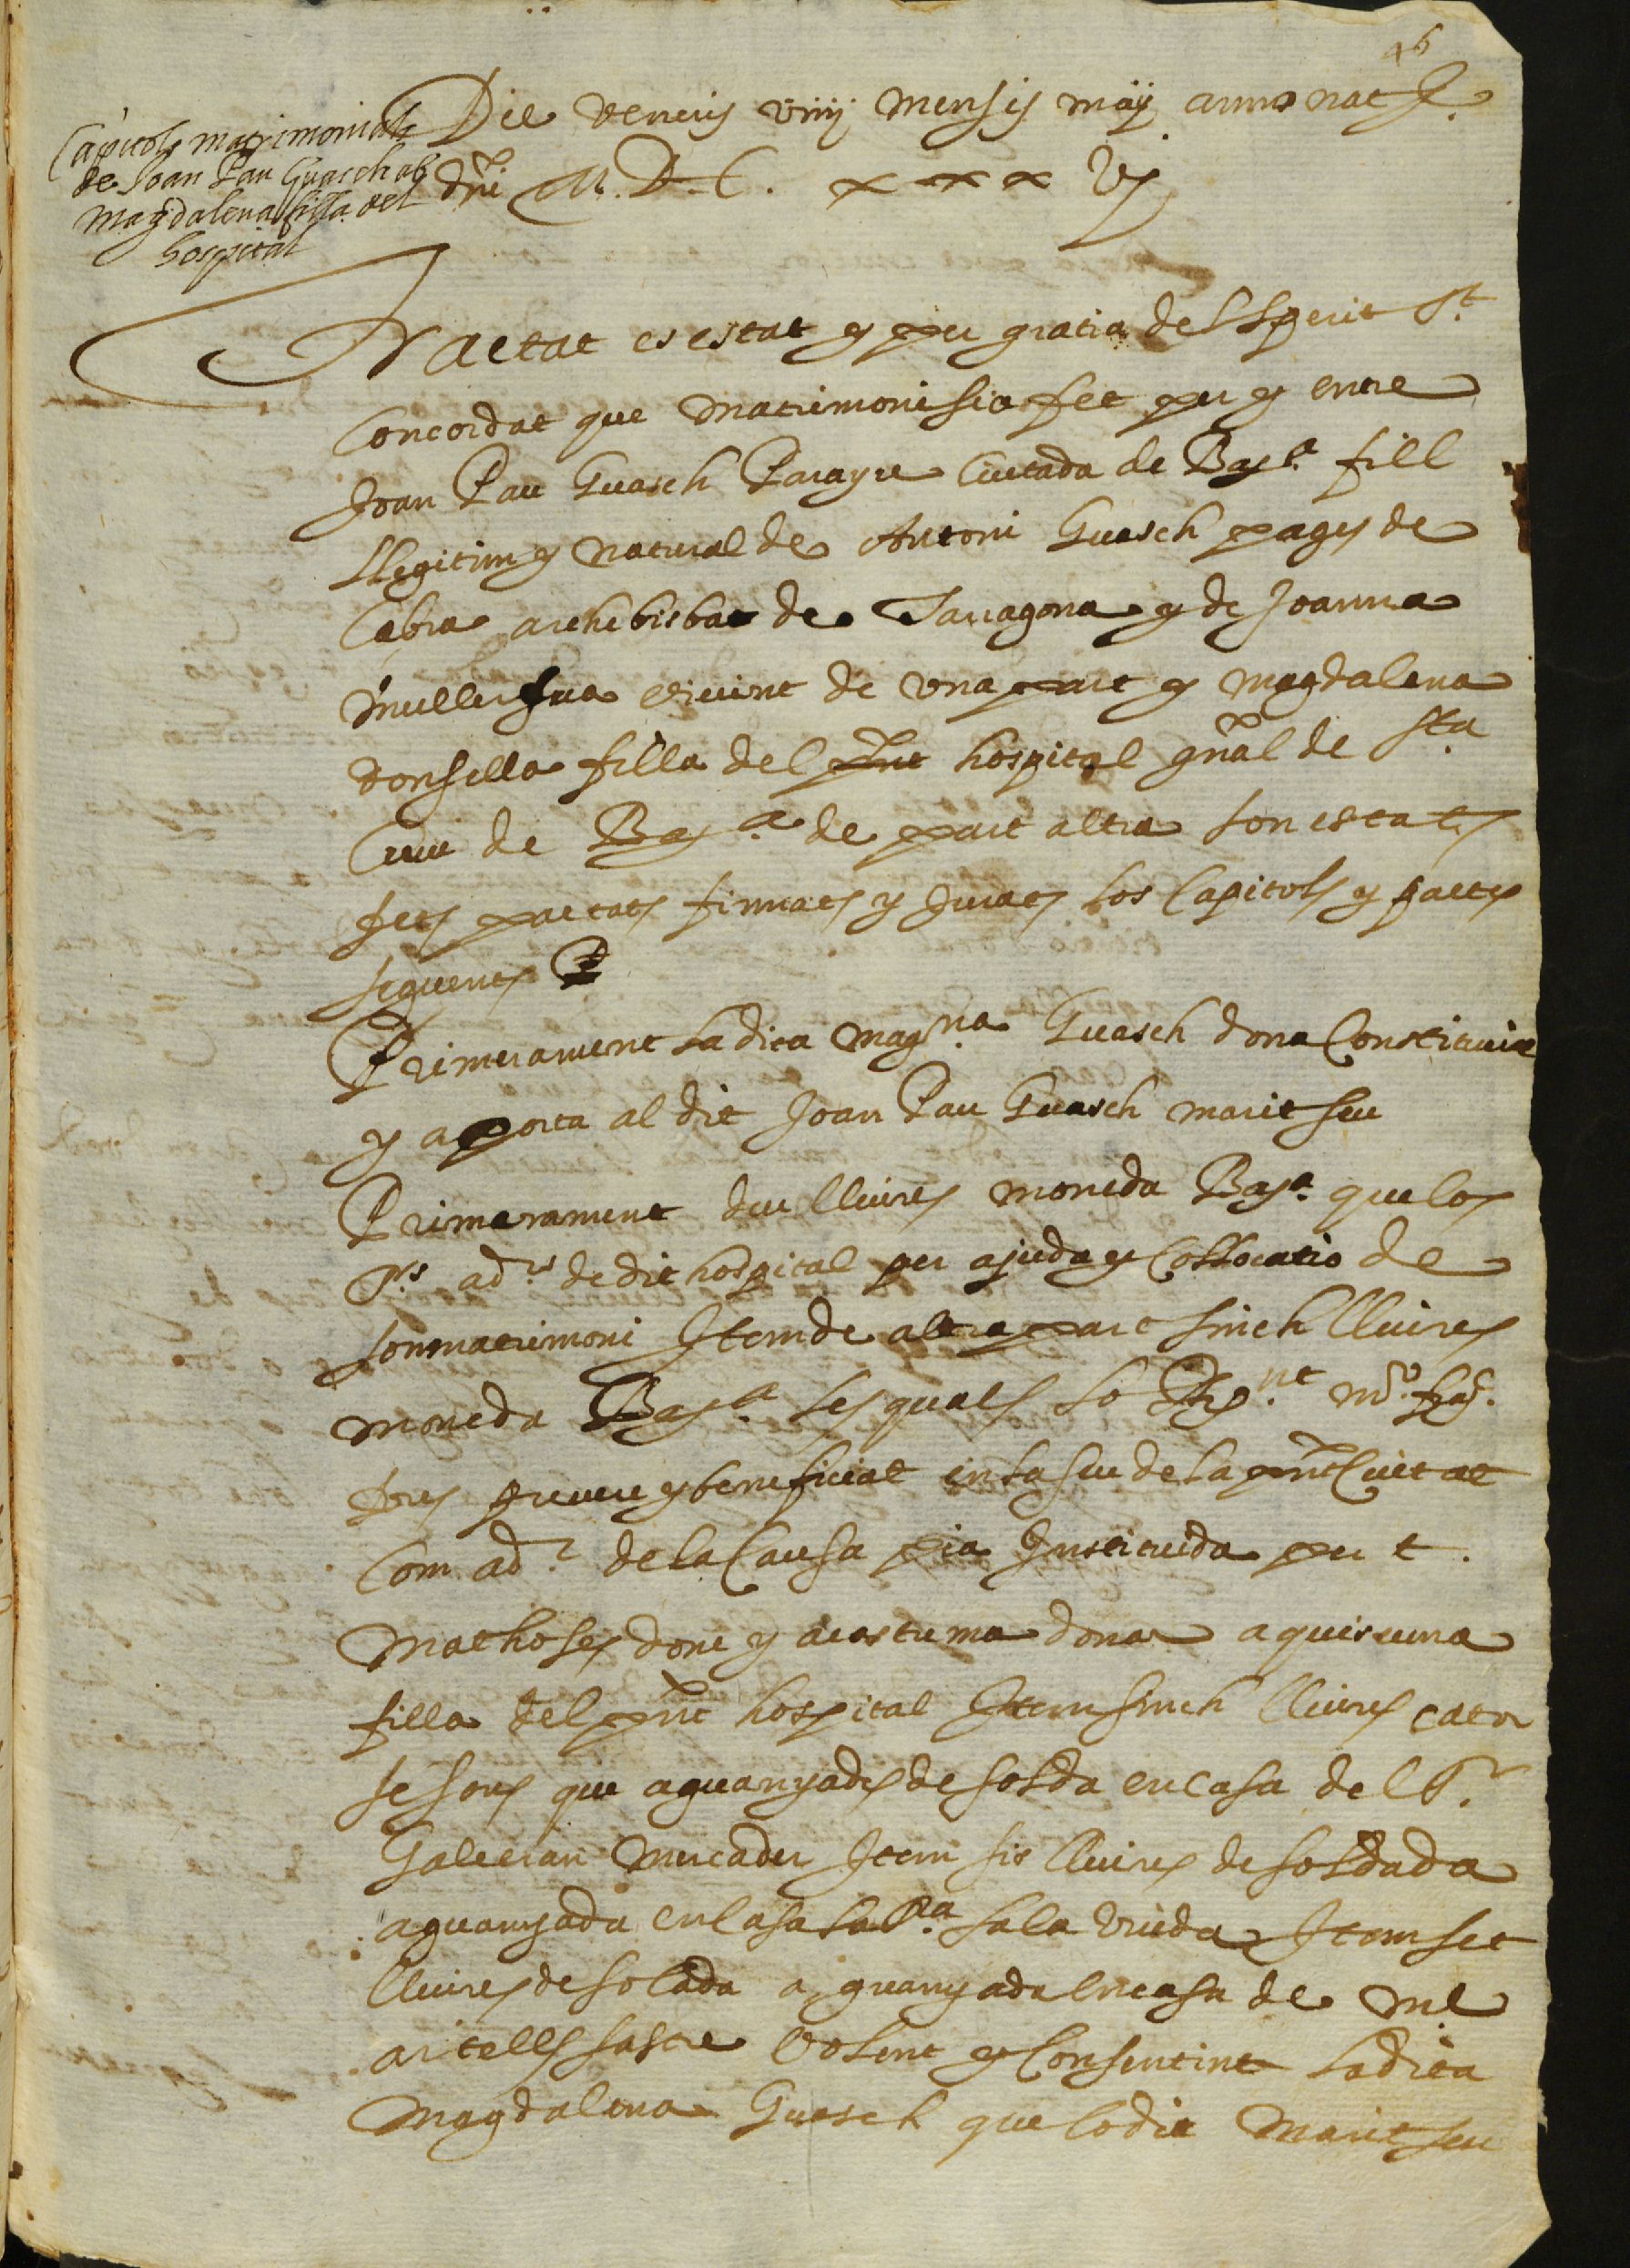 46
Capitols matrimonials
de Joan Pau Guasch ab
Magdalena filla del
hospital
Die veneris viiij mensis maij anno nat.
dni M.D.C. xxx vj
Tractat es estat y per gratia del Sperit St.
Concordat que matrimoni sia fet per y entre
Joan Pau Guasch Parayre Ciutada de Bar.a fill
llegitim y natural de Antoni Guasch pages de
Cabra archebisbat de Tarragona y de Joanna
muller sua vivint de una part y Magdalena
donsella filla del pnt hospital gnal de Sta
Creu de Bar.a de part altra son estats
fets pactats firmats y Jurats los Capitols y pactes
seguents
Primerament la dita Mag.na Guasch dona Constitueix
y aporta al dit Joan Pau Guasch marit seu
Primerament deu lliures moneda Bar.a que los
Srs. adrs. de dit hospital per ajuda y Collocatio de
son matrimoni Item de altra part sinch lliures
moneda Bar.a les quals lo Rnt. mo. fra.
fores prevere y beneficiat en la seu de la pnt Ciutat
Com adr. de la Causa pia Instituida per t.
Mathoses done y acostuma donar a quiscuna
filla del pnt hospital Item sinch lliures cator
se sous que a guanyades de solda en casa del Sr.
Galceran mercader Item sis lliures de soldada
a guanyada en casa la Sa. Sala viuda Item set
lliures de soldada a guanyada en casa de me
artells sastre volent y Consentint la dita
Magdalena Guasch que lo dit marit seu